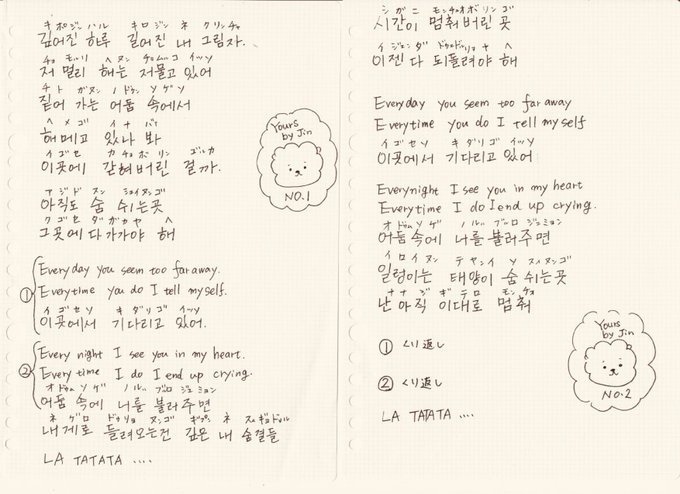 キ ポジン ハル キ ロ ジン ネ ク リンチャ
깊어진 하루 길어진 내 그림자.
チョ モルリ ヘ ヌン チョムルコ イッソ
저 멀리 해는 저물고 있어
チト ガヌン ノドゥム ソゲソ
짙어 가는 어둠 속에서
ヘ メゴ イナ バ
헤메고 있나 봐
イゴセ カチョ ボリン ゴルカ
이곳에 갇혀버린 걸까.
アジド スン シュィヌンゴ
아직도 숨 쉬는곳
ク ゴセ ダガカヤ ヘ
그곳에 다가가야 해
① Everyday you seem too far away.
Everytime you do I tell my self.
イ ゴセソ キダリゴ イッソ
이곳에서 기다리고 있어.
② Every night I see you in my heart.
Every time I do I end up crying.
オドゥム ソゲ ノルル ブルロ ジュミョン
어둠 속에 너를 불러주면
ネ ゲロ ドゥルリョ ヌンゴ ギップン ネ スムギョルドゥル
내게로 들려오는건 깊은 내 숨결들
LA TATATA ....
Yours
by Jin
NO.1
シガニ モンチュオボリン ゴ
시간이 멈춰버린 곳
イジェンダ ドゥェドルリョヤ ヘ
이젠 다 되돌려야 해
Everyday you seem too far away
Everytime you do I tell my self
イゴセソ キダリゴ イッソ
이곳에서 기다리고 있어
Everynight I see you in my heart
Everytime I do I end up crying.
オドゥム ソゲ ノルル ブルロ ジュミョン
어둠 속에 너를 불러주면
イロイヌン テヤンイ スム スィヌンゴ
일렁이는 태양이 숨 쉬는곳
ナナジギデロ モンチュオ
난 아직 이대로 멈춰
① くり返し
② くり返し
LA TATATA ....
Yours
by Jin
NO.2